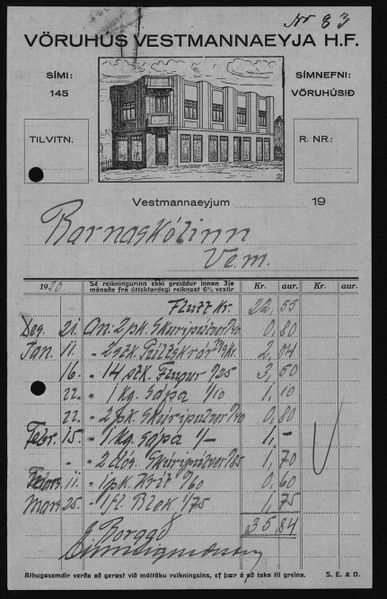 Nr 83
VÖRUHÚS VESTMANNAEYJA H.F.
SÍMI:
145
SÍMNEFNI:
VÖRUHÚSIÐ
TILVITN.
R. NR.:
Vestmannaeyjum 19
Barnaskólinn
Vem.
1930 Sé reikningurinn ekki greiddur innan 3ja mánaða frá úttektardegi reiknast 6% vextir Kr. aur. Kr. aur.
Flutt kr. 22,55
Des. 21. An: 2 pk. Skúripúlver /40 0,80
Jan. 11. - 2 stk. 2,04
16. - 14 stk. /25 3,50
22. - 1 kg. Sápa 1/10 1,10
22. - 2 pk. Skúripúlver /40 0,80
Febr. 15. - 1 kg. Sápa 1/- 1,-
- 2 dós. Skúripúlver /85 1,70
11. - 1 pk. Krít /60 0,60
Mars 25. - 1 fl. Blek 1/75 1,75
35,84
Borgað
Athugasemdir verða að gerast við móttöku reikningsins, ef þær á að taka til greina. S. E. & O.